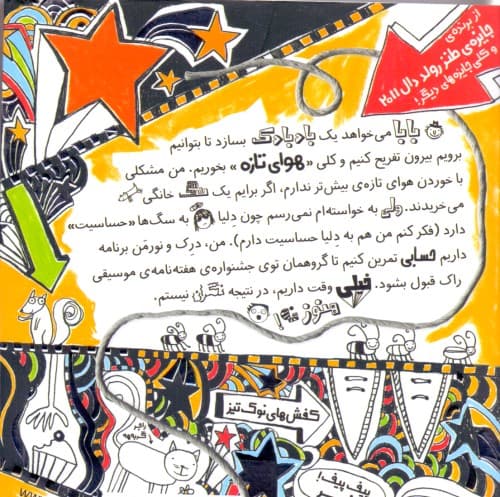 از برنده‌ی
جایزه‌ی طنز رولد دال ۲۰۱۱
و کلی جایزه‌های دیگر!
بابا می‌خواهد یک بادبادک بسازد تا بتوانیم
برویم بیرون تفریح کنیم و کلی «هوای تازه» بخوریم. من مشکلی
با خوردن هوای تازه‌ی بیش‌تر ندارم، اگر برایم یک سگ خانگی
می‌خریدند. ولی به خواسته‌ام نمی‌رسم چون دِلیا به سگ‌ها «حساسیت»
دارد (فکر کنم من هم به دِلیا حساسیت دارم). من، دِرِک و نورمَن برنامه
داریم حسابی تمرین کنیم تا گروهمان توی جشنواره‌ی هفته‌نامه‌ی موسیقی
راک قبول بشود. خیلی وقت داریم، در نتیجه نگران نیستم.
هنوز نه!
کفش‌های نوک‌تیز
راجر
گربهه
پیف پیف!
WW